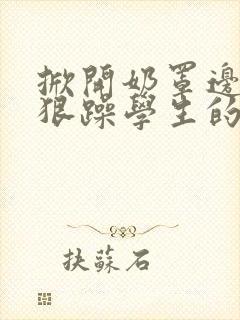 掀開奶罩邊
狠躁學生的
抉蘇石